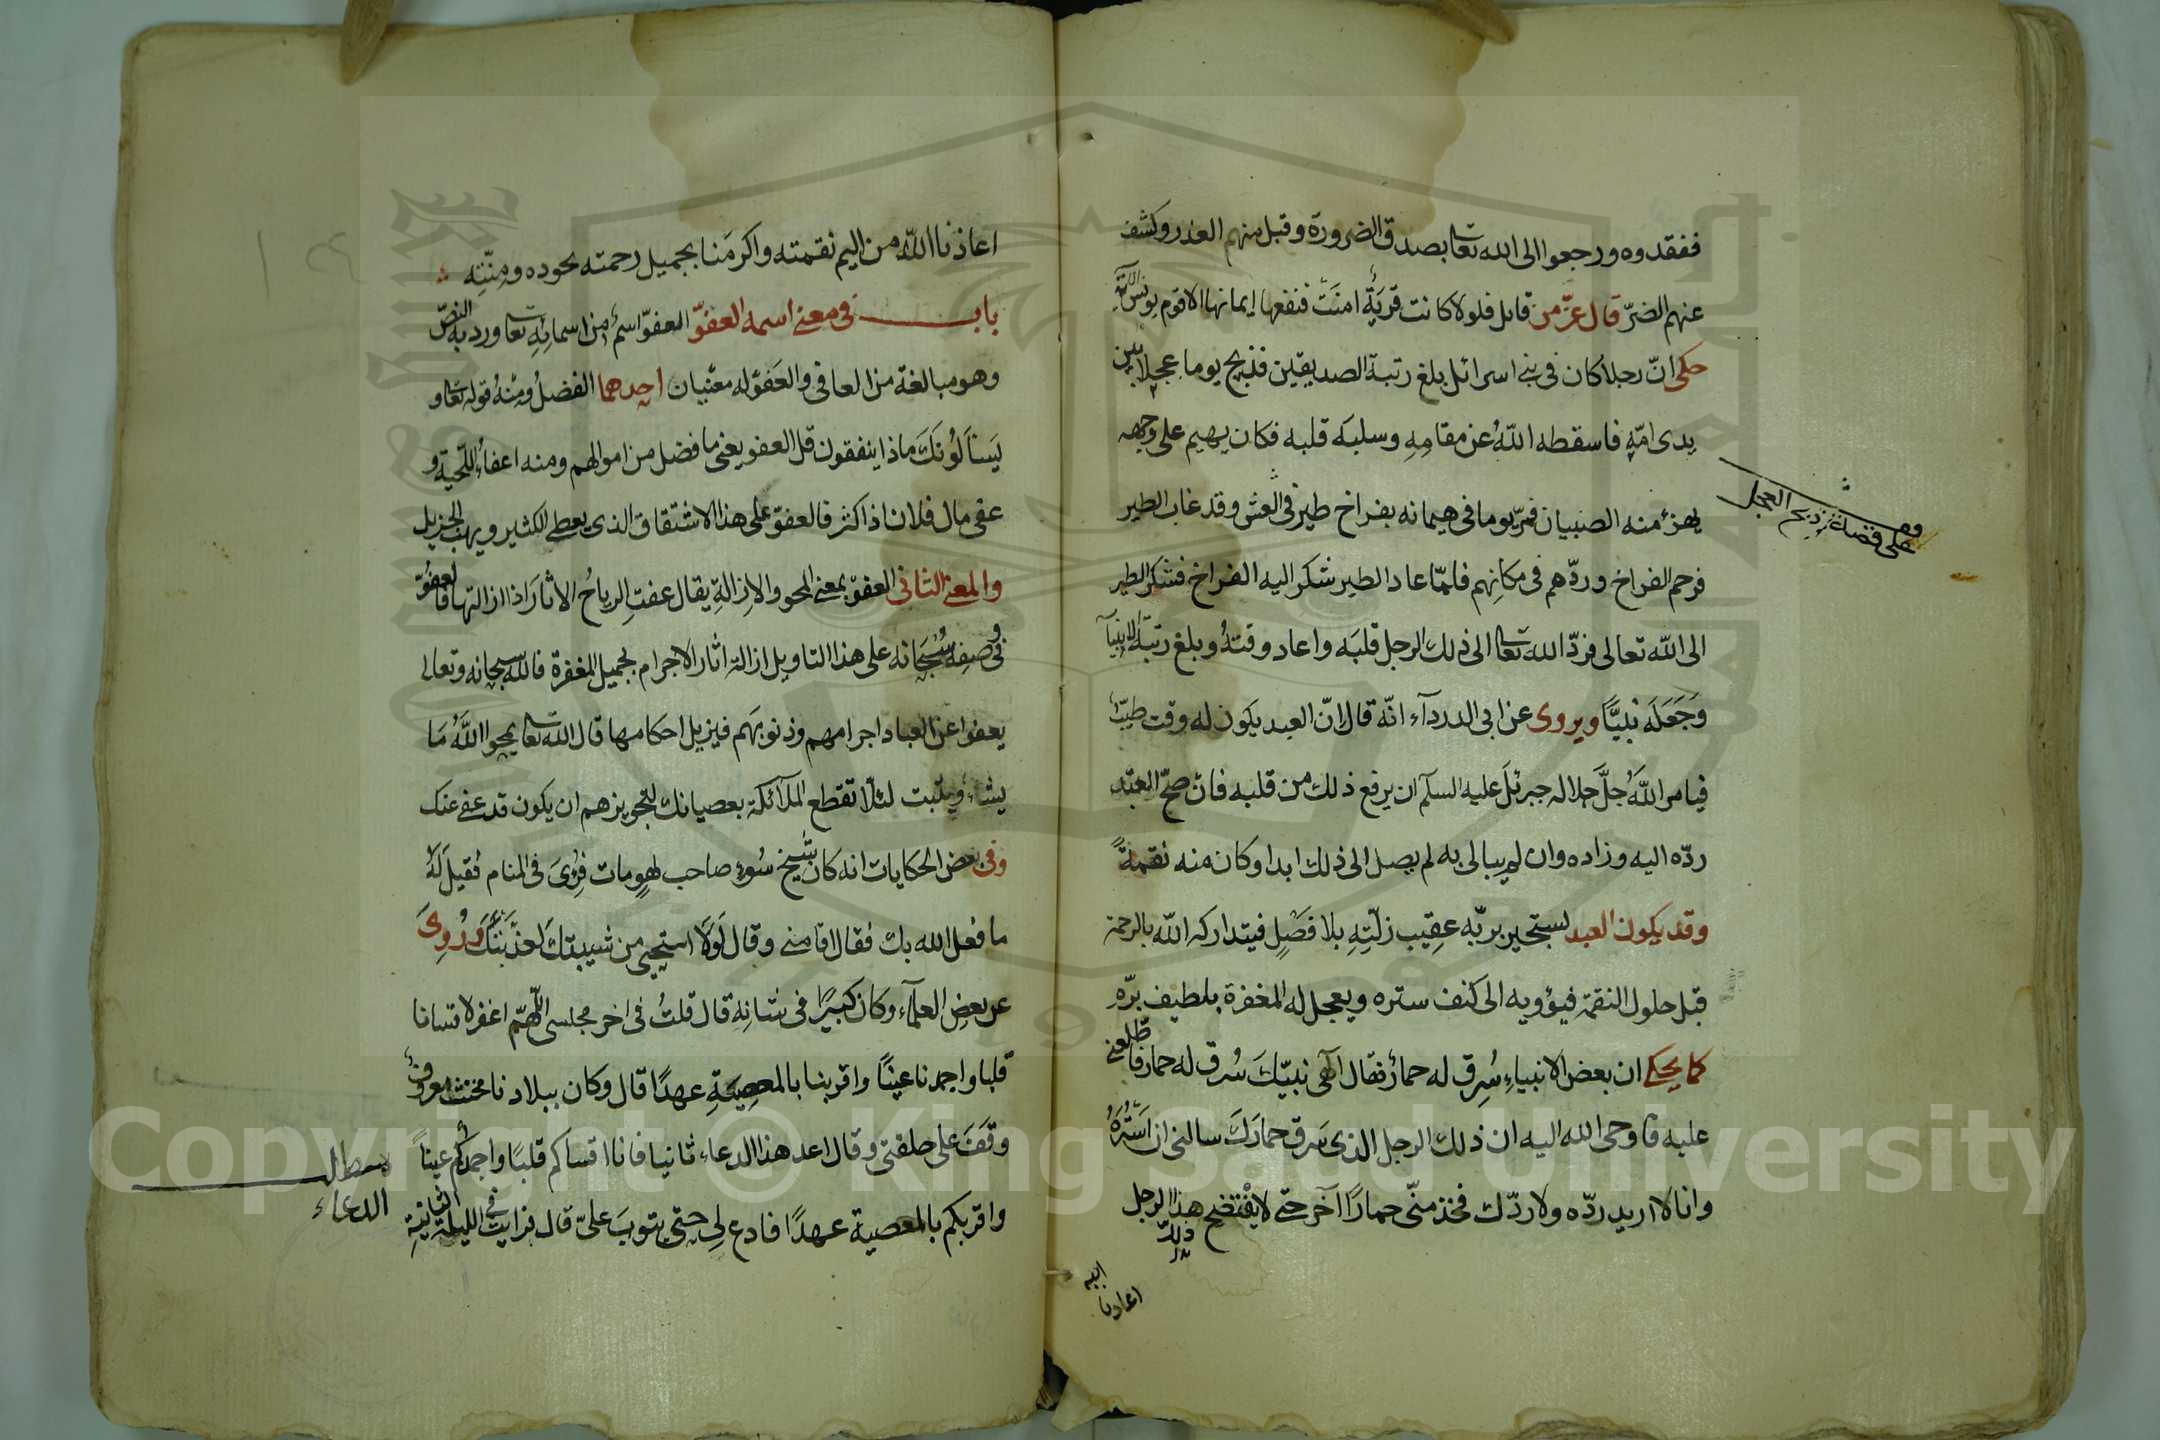 ففقدوه ورجعوا الى الله تعا بصدق الضرورة وقبل منهم العذر وكشف
عنهم الضرّ قال عزّ من قائل فلولا كانت قريةٌ امنَت فنفعها ايمانها الا قوم يونس الآية
حكى انّ رجلا كان فى بنى اسرائل بلغ رتبة الصديقين فذبح يوما عجيلا بين
يدى امّهِ فاسقطه اللّهُ عن مقامِهِ وسلبَه قلبه فكان يهيم على وجهه
يهزء منه الصبيان فمرّ يوما فى هيمانه بفراخ طير فى العش وقد غاب الطير
فرحم الفراخ وردّهم فى مكانِهم فلمّا عاد الطير شكر اليه الفراخ فشكر الطير
الى اللّه تعالى فردّ الله تعا الى ذلك الرجل قلبَه واعاد وقتهُ وبلغ رتبة الانبيآ
وَجَعَلَه نبيًّا ويروى عن ابى الدردآء انّه قال انّ العبد يكون له وقت طيّبٌ
فيامر اللّهُ جلَّ جلاله جبرئلَ عليه السلآم ان يرفع ذلك من قلبه فان صحّ العبد
ردّه اليه وزاده وان لم يبالى به لم يصل الى ذلك ابدا وكان منه نقمةً
وقد يكون العبد يستجير بربّه عقِيب زلّتِهِ بلا فَصْلٍ فيتداركه اللّه بالرحمة
قبل حلول النقمة فيؤويه الى كنف ستره ويعجل له المغفرة بلطيف برّهِ
كما يحكى ان بعض الانبياءِ سُرِق له حمارٌ فقال الهى نبيّكَ سُرق له حمار فاطلعنى
عليه فاوحى الله اليه ان ذلك الرجل الذى سَرق حمارَكَ سالنى ان اَستُرهُ
وانا لا اريد ردّه ولا ردّك فخذ منّى حمارًا آخر حتّى لا يفْتضح هذا الرجل
على قصة ذبح العجل
اعاذنا
اعاذنا اللّه من اليم نقمته واكرمَنا بجميل رحمته بجوده ومِنّتِه
باب فى معنى اسمه العفوّ العفوّ اسمٌ من اسمائِهِ تعا ورد به النصّ
وهو مبالغة من العافى والعَفوُ له معنيان احدهما الفضلُ ومِنْهُ قوله تعا و
يَسْأَلُونَكَ ماذا ينفقون قل العفو يعنى ما فضل من اموالهم ومنه اعفاءُ اللّحية و
عفى مال فلان اذا كثر فالعفوّ على هذا الاشتقاق الذى يعطى الكثير ويهب الجزيل
والمعنى الثانى العفوّ بمعنى المحو والازالةِ يقال عفتِ الرياحُ الاثارَ اذا ازالتها فالعفوّ
فى وصفه سُبحَانه على هذا التاويل ازالة اثار الاجرام بجميل المغفرة فاللّه سبحانه وتعالى
يعفوا عن العباد اجرامهم وذنوبهَم فيزيل احكامها قال اللّه تعا يمحوا اللَّهُ مَا
يشاء ويثبت لئلّا تقطع الملآئكة بعصيانك لتجويزهم ان يكون قد عفى عنك
وفى بعض الحكايات انه كان شيخ سُوءٍ صاحب لهوٍ مات فرُئىَ فى المنام فقيلَ لَهُ
ما فعل الله بك فقال اقامنى وقال لَوْلَا استحيى من شيبتكَ لعذّبتكَ وَرُوِىَ
عن بعضِ العلمآءِ وكان كبيرًا فى شانِه قال قلتُ فى اخر مجلسى اللّهمّ اغفر لاقسانا
قلبا واجمدنا عينًا واقربنا بالمعصيةِ عهدًا قال وكان ببلادنا مخنّث معروف
وقَفَ على حلقتى وقال اعد هذا الدعاء ثانيا فانا اقساكم قلبًا واجمدكم عينًا
واقربكم بالمعصية عهدًا فادع لى حتى يتوبَ علىّ قال فرايت فى الليلة الثانيةِ
الدعاء
Copyright © King Saud University